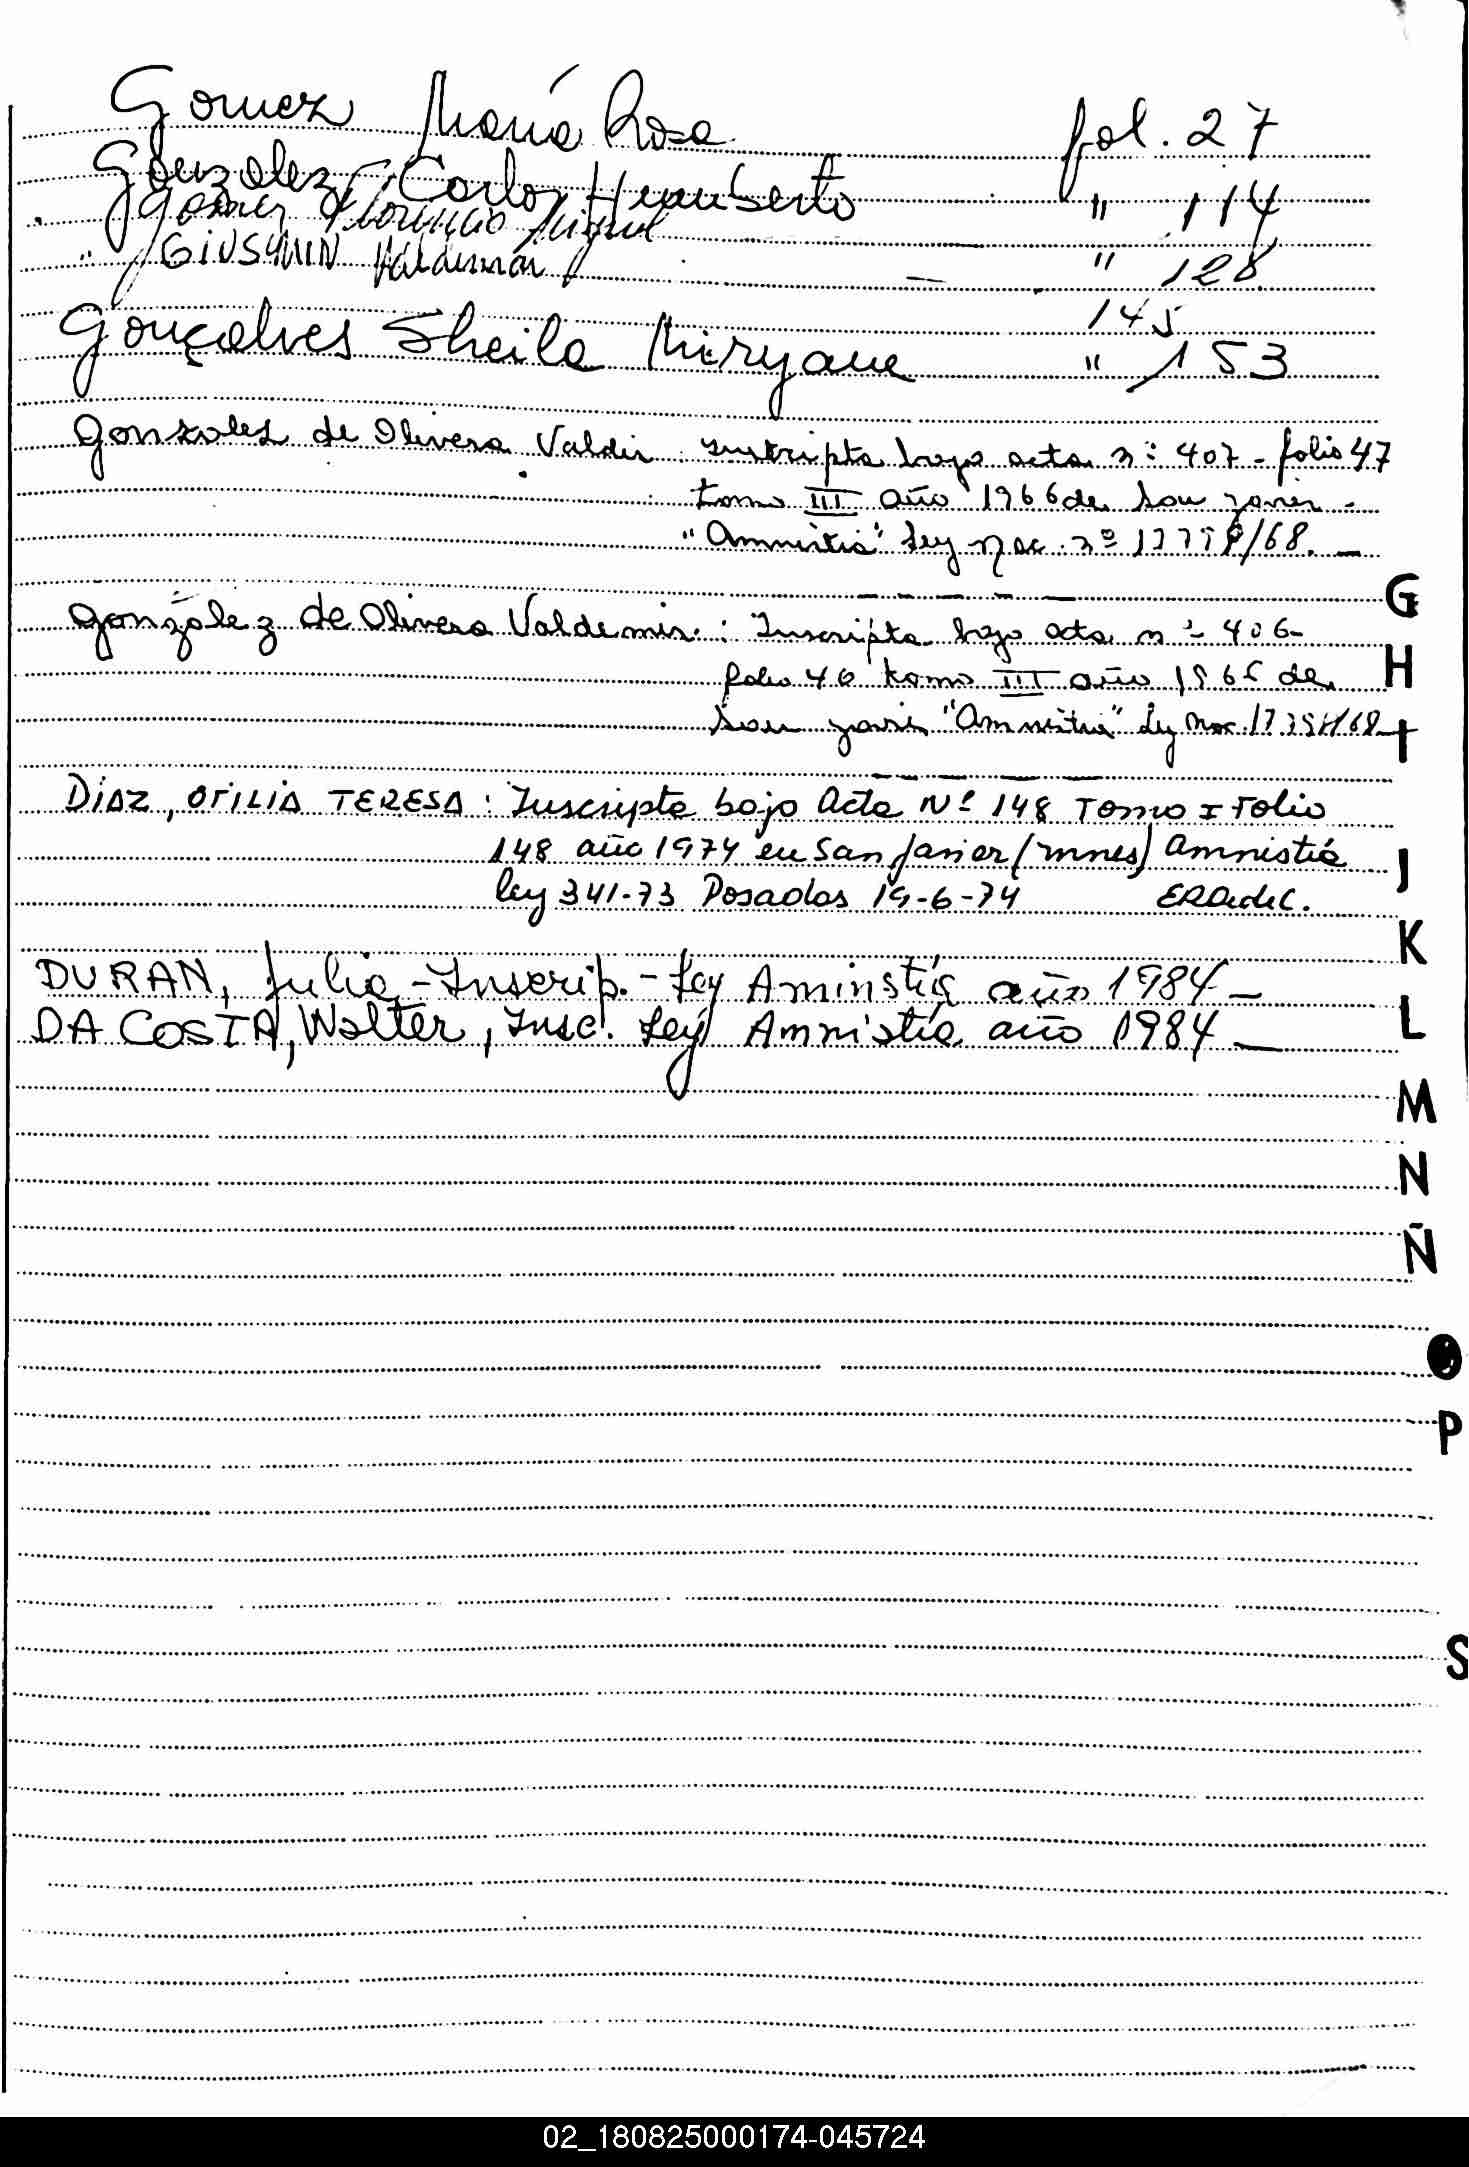 Gomez María Rosa fol. 27
Gonzalez Carlos Humberto " 114
Gomez Florencio Miguel " 128
" GIUSYNIN Valdemar 145
Gonçalves Sheila Miryane " 153
Gonzales de Olivera Valdir : Inskripta bajo acta n° 407 - folio 47
tomo III año 1966 de San
"Amnistia" Ley nac. n°
González de Olivera Valdemir : Inscripta bajo acta n° 406-
folio 46 tomo III año 196 de
San "Amnistia" Ley Nac.
DiAZ, OTILIA TERESA : Inscripta bajo Acta N° 148 Tomo I Folio
148 año 1974 en San Javier (mnes) Amnistía
ley 341-73 Posadas 19-6-74
DURAN, Julia - Inscrip. - Ley Aminstía año 1984 -
DA COSTA, Walter, Insc. Ley Amnistía año 1984 -
G
H
I
J
K
L
M
N
Ñ
O
P
S
02_180825000174-045724